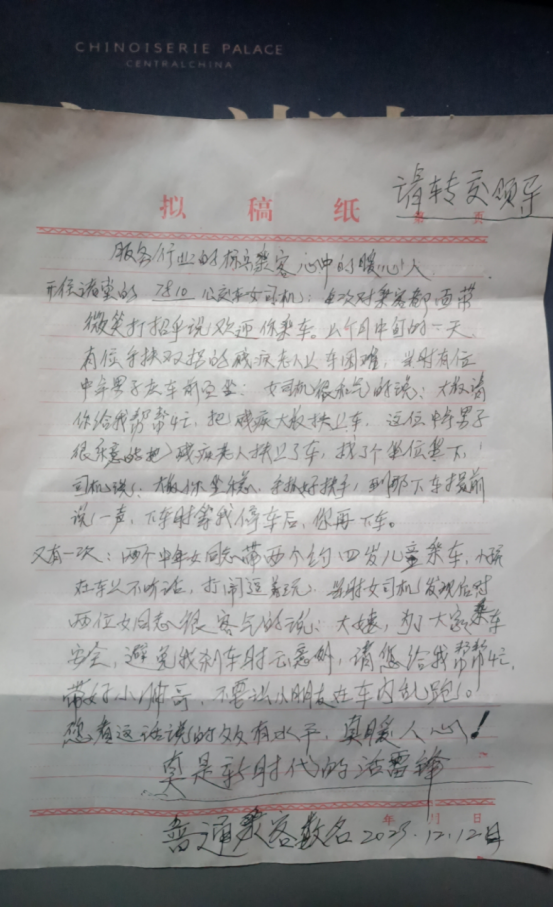 CHINOISERIE PALACE
CENTRALCHINA
请转交领导
拟 稿 纸
页
服务行业的标兵乘客心中的暖心人
公交车女司机：每次对乘客都面带
微笑打招乎说欢迎你乘车。上个月中旬的一天
有位手扶双拐的残疾老人上车困难，当时有位
中年男子在车前 坐：女司机很和气的说：大叔请
你给我帮帮忙，把残疾大叔扶上车，这位中年男子
很乐意的把残疾老人扶上了车，找了个坐位坐下，
司机说：大叔你坐稳、手扶好扶手，到那下车提前
说一声，下车时等我停车后，你再下车。
又有一次：两个中年女同志带两个约四岁儿童乘车，小孩
在车上不听话，打闹逗着玩，当时女司机发现后对
两位女同志很客气的说：大姨，为了大家乘车
安全，避免我刹车时云意外，请您给我帮帮忙，
带好小帅哥，不要让小朋友在车内乱跑。
您看这话说的多有水平，真暖人心！
真是新时代的活雷锋
年 月 日
普通乘客数名 2023.12.12日